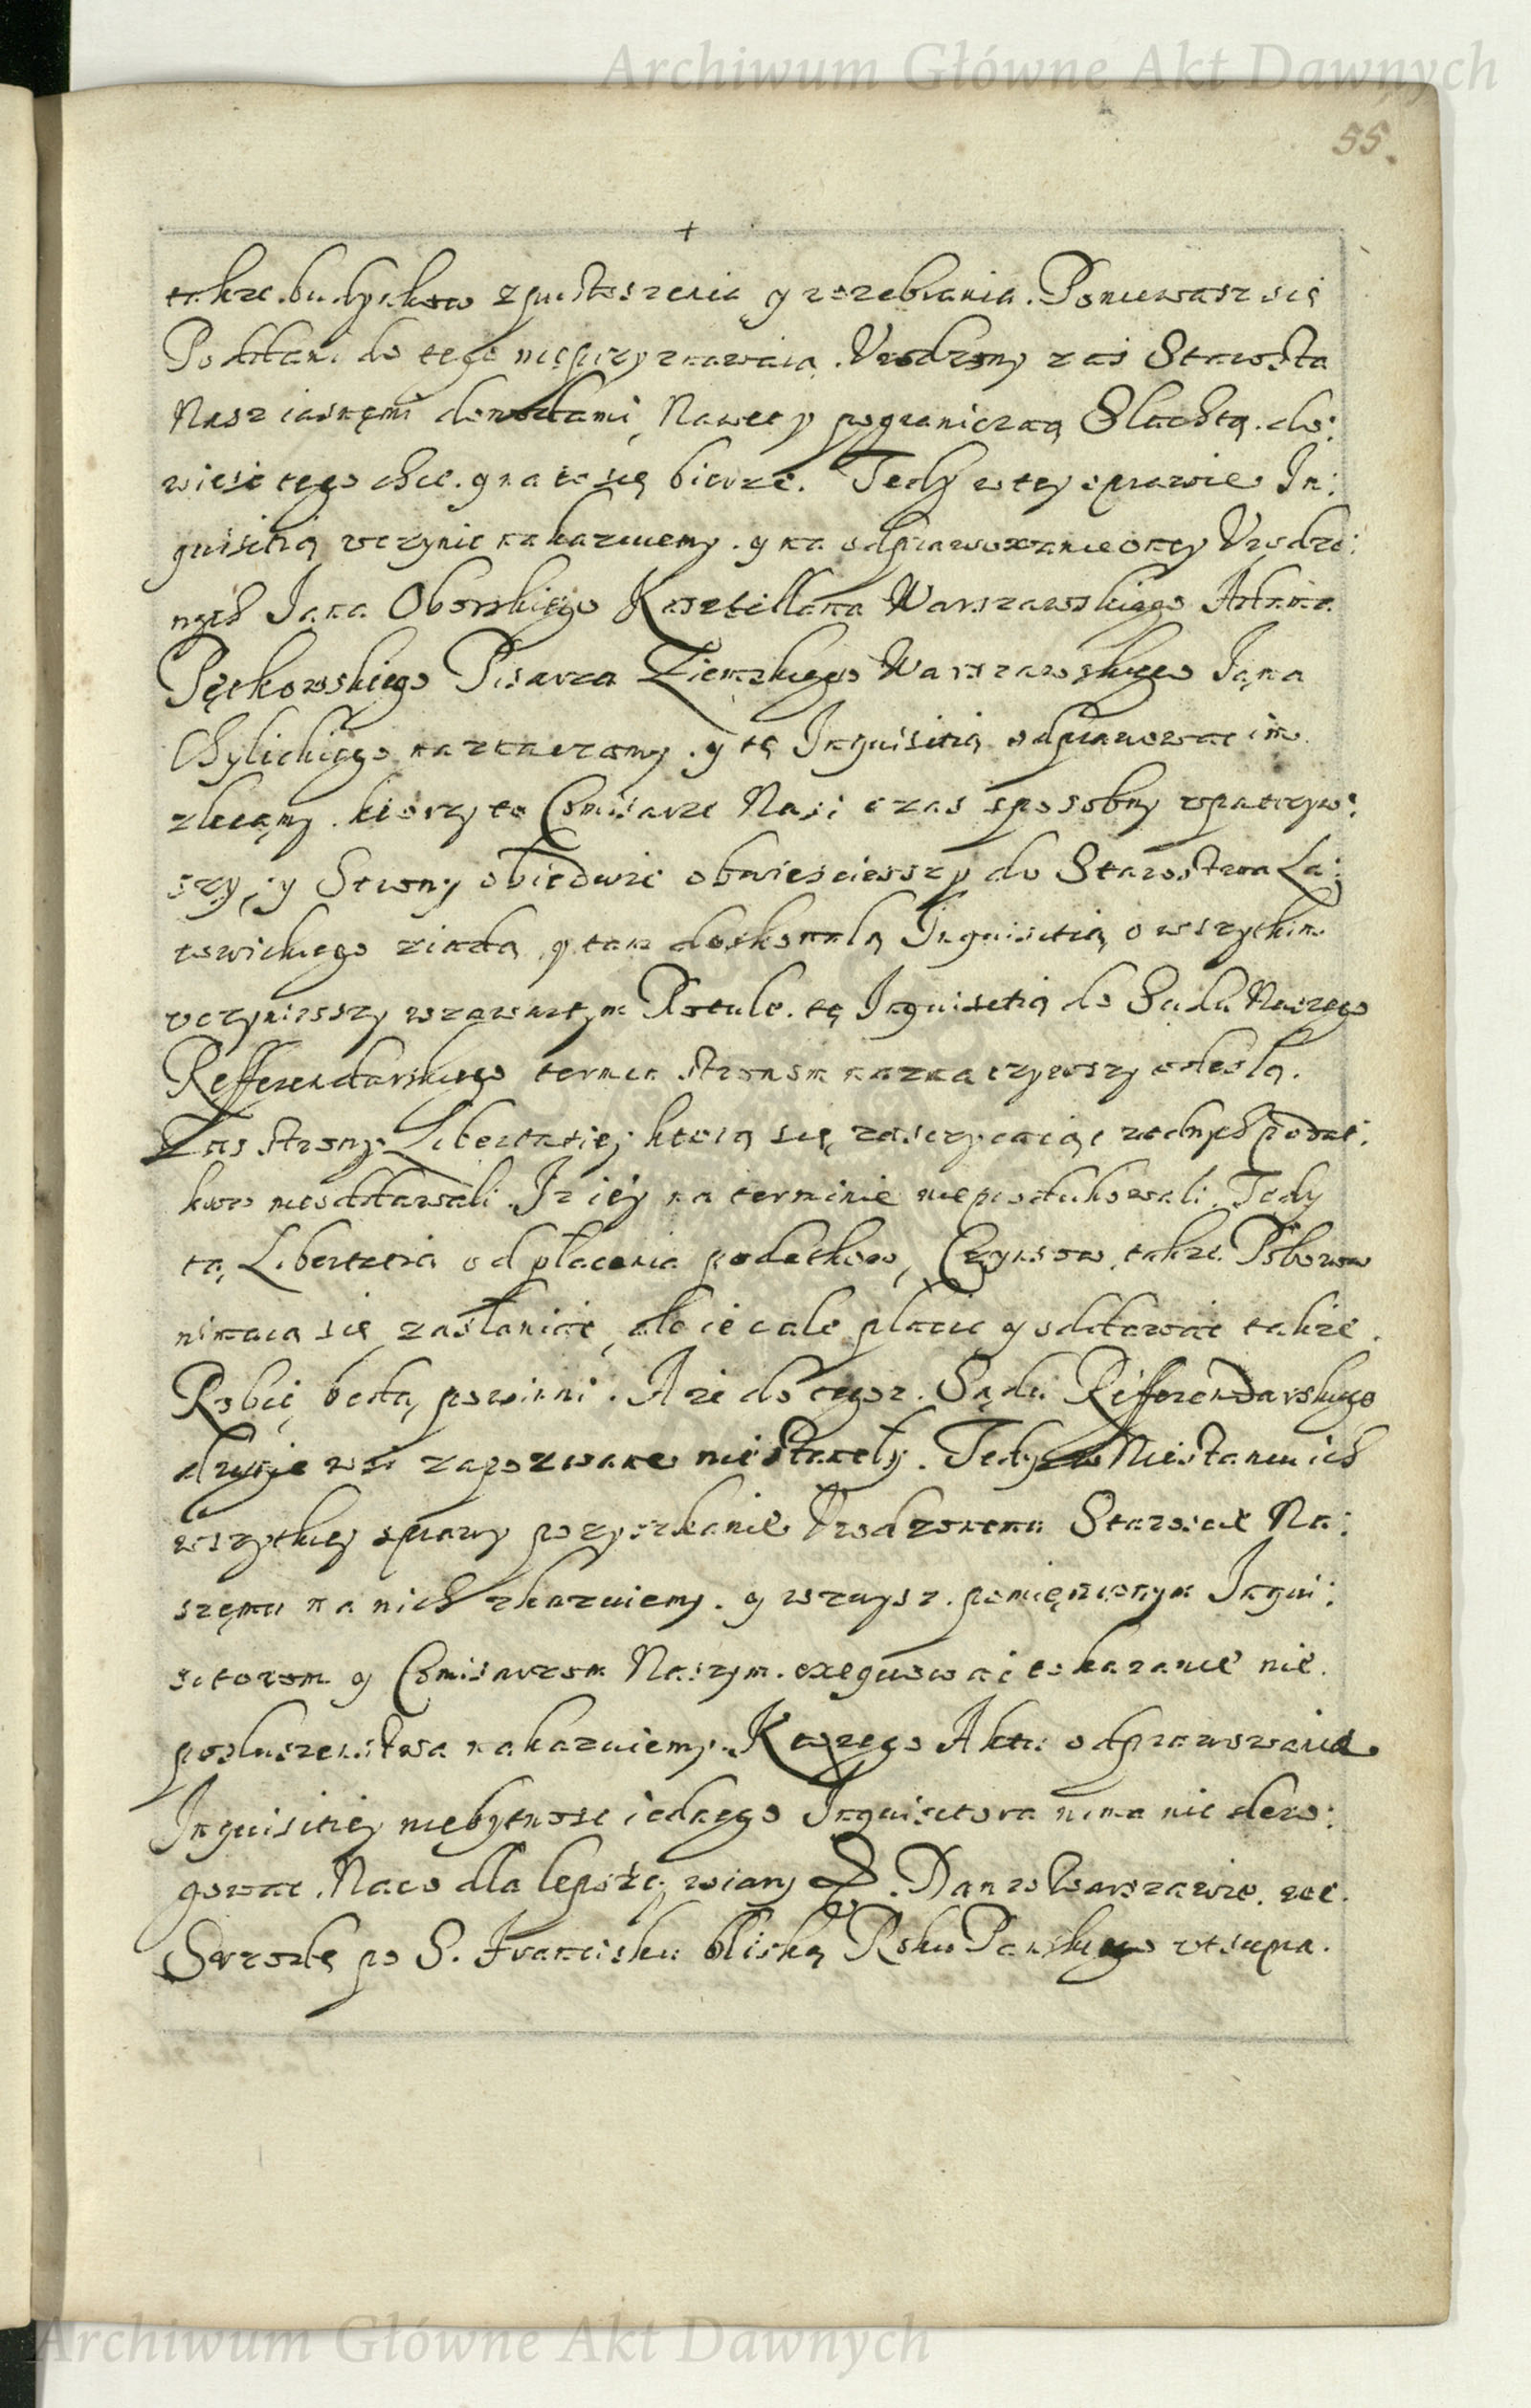 Archiwum Główne Akt Dawnych
55.
+
także budynkow zpustoszenia y rozebrania. Poniewasz się
Poddani do tego nieprzyznawaią. Vrodzony zas Starosta
Nasz iasnęmi dowodami, Nawet y pograniczną Slachtą. do:
wiesc tego chce. y na to się bierze. Tedy w tey sprawie In:
quisitią vczynic nakazuiemy. y na odprawowanie oney Vrodzo:
nych Jana Oborskiego Kasztellana Warszawskiego Adama
Pętkowskiego Pisarza Ziemskiego Warszawskiego Jąna
Chylickiego naznaczamy. y tę Inquisitią odprawowac im
zlecąmy. ktorzy to Comisarze Nasi czas sposobny vpatrzyw:
szy, y Strony obiedwie obwiesciwszy do Starostwa La:
towickiego ziadą, y tam doskonałą Inquisitią o wszytkim
vczyniwszy w zawartym Rotule. tę Inquisitią do Sądu Naszego
Refferendarskiego termin stronom naznaczywszy odeslą.
Zas strony Libertatiey ktorą się zasczycaiąc zadnych podat:
kow nieoddawali. Iz iey na terminie nieprodukowali. Tedy
tą Libertatią od płacenia podatkow, Czynszow, także Poborow
nimaią się zasłaniać, ale ie cale płacic y oddawać także
Robić będą powinni. A że do tegoz. Sądu Refferendarskiego
drugie wsi zapozwane niestanęły. Tedy w Niestaniu ich
wszytkiey sprawy pozyskanie Vrodzonemu Staroscie Na:
szęmu na nich zkazuiemy. y wzwysz. pomięnionym Inqui:
sitorom y Comisarzom Naszym. exequowac to karanie nie.
posłuszeństwa nakazuiemy. Ktorego Aktu odprawowania
Inquisitiey niebytnosc iednego Inquisitora nima nic dero:
gowac. Naco dla lepszey wiary &. Dan w Warszawie. we.
Srzodę po S. Franciszku bliską Roku Panskiego vt supra.
Archiwum Główne Akt Dawnych